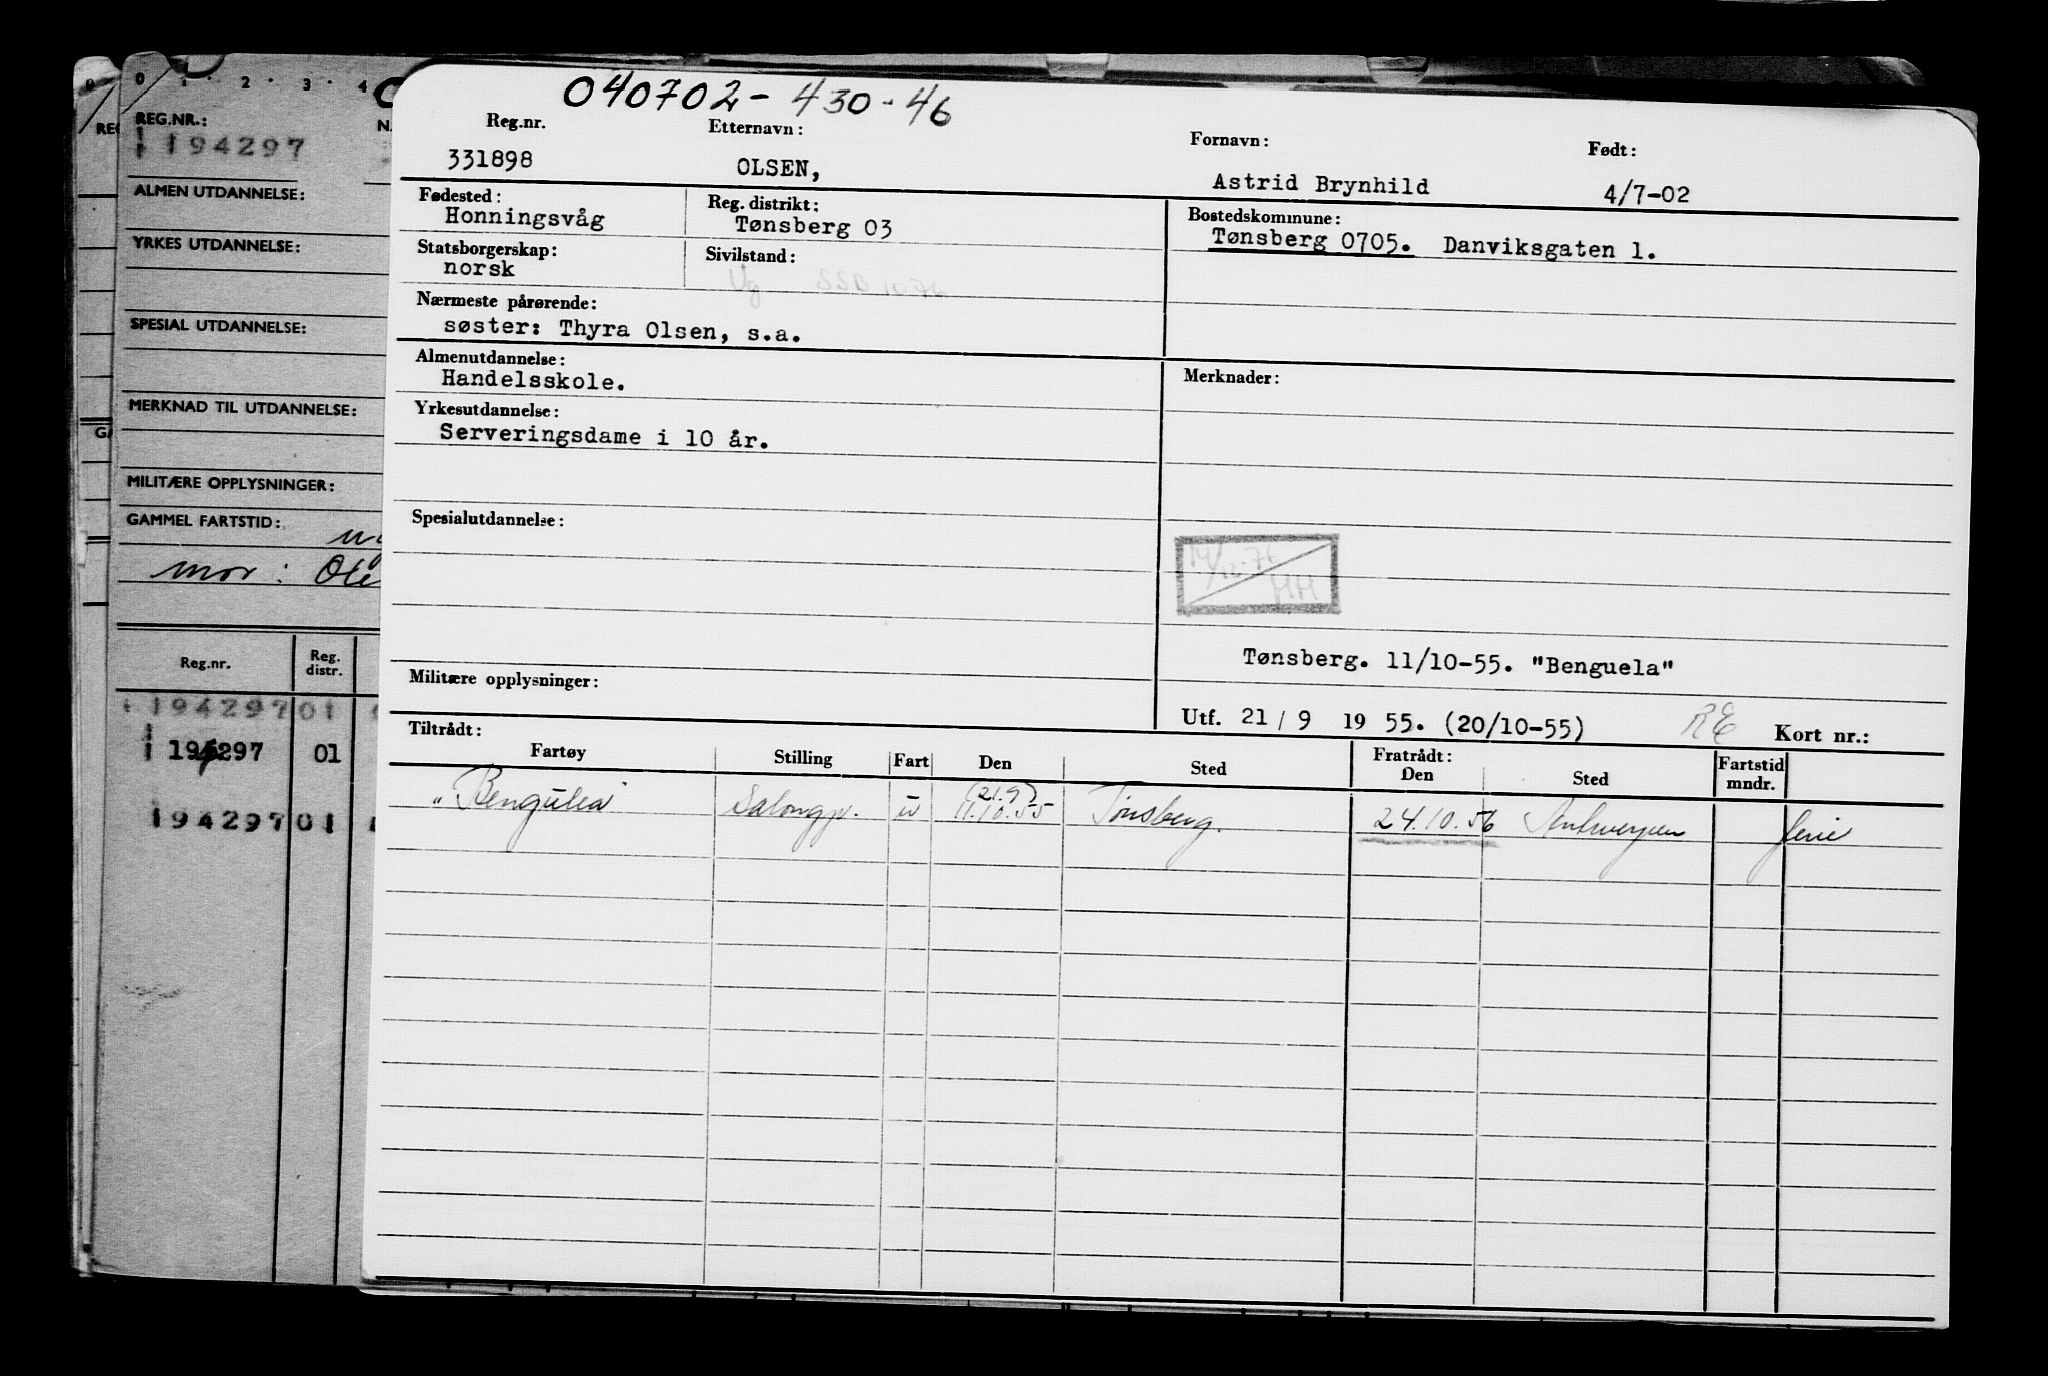 0 1 2 3 4
REG.NR.:
194297
ALMEN UTDANNELSE:
YRKES UTDANNELSE:
SPESIAL UTDANNELSE:
MERKNAD TIL UTDANNELSE:
MILITÆRE OPPLYSNINGER:
GAMMEL FARTSTID:
mor:
Reg.nr. Reg. distr.
194297 01
194297 01
194297 01
040702-430-46
Reg.nr. Etternavn: Fornavn: Født:
331898 OLSEN, Astrid Brynhild 4/7-02
Fødested: Reg. distrikt: Bostedskommune:
Honningsvåg Tønsberg 03 Tønsberg 0705. Danviksgaten 1.
Statsborgerskap: Sivilstand:
norsk Ug SSB 1076
Nærmeste pårørende:
søster: Thyra Olsen, s.a.
Almenutdannelse: Merknader:
Handelsskole.
Yrkesutdannelse:
Serveringsdame i 10 år.
Spesialutdannelse:
14/12-76
HH
Tønsberg. 11/10-55. "Benguela"
Militære opplysninger:
Utf. 21/9 1955. (20/10-55) RE Kort nr.:
Tiltrådt: Fratrådt:
Fartøy Stilling Fart Den Sted Den Sted Fartstid mndr.
(21.9)
"Benguela" Salongp. u 11.10.55 Tønsberg. 24.10.56 Antwerpen ferie